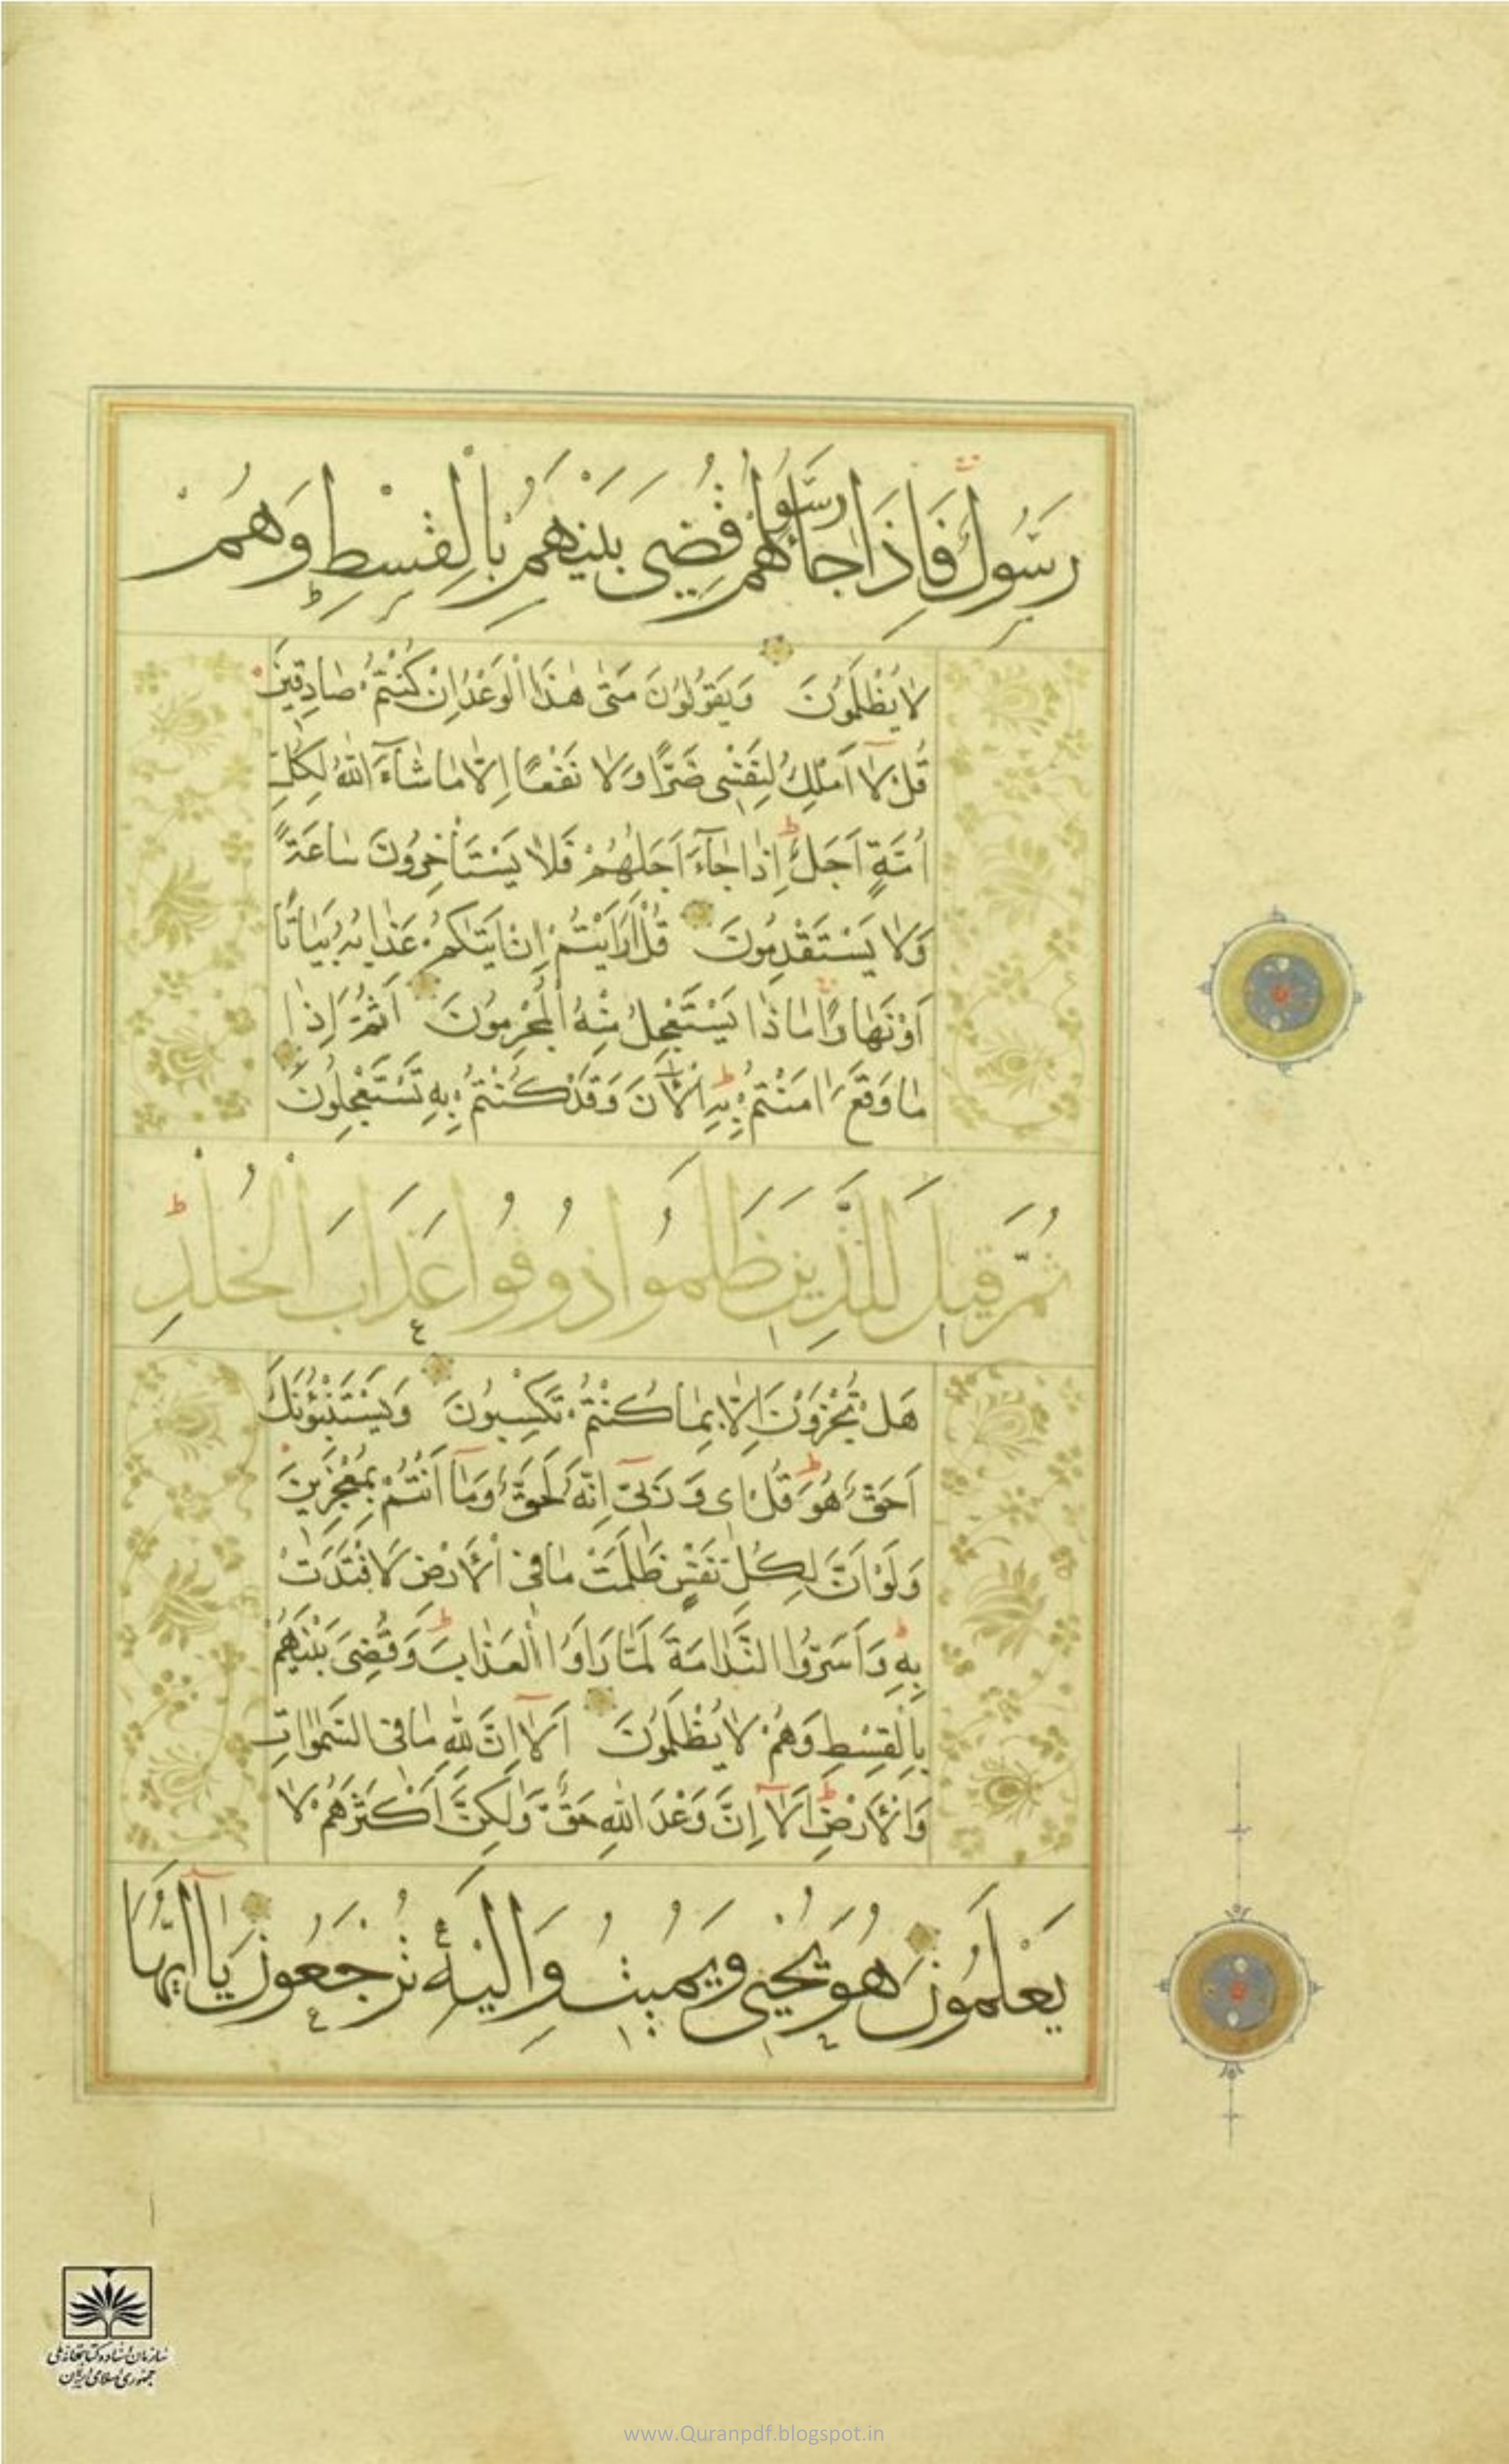 رَسُولٌ فَاِذَا جَاءَ رَسُولُهُمْ قُضِيَ بَيْنَهُمْ بِالْقِسْطِ وَهُمْ
لَا يُظْلَمُونَ وَيَقُولُونَ مَتٰى هٰذَا الْوَعْدُ اِنْ كُنْتُمْ صَادِقِينَ
قُلْ لَا اَمْلِكُ لِنَفْسِى ضَرًّا وَلَا نَفْعًا اِلَّا مَا شَآءَ اللّٰهُ لِكُلِّ
اُمَّةٍ اَجَلٌ اِذَا جَآءَ اَجَلُهُمْ فَلَا يَسْتَأْخِرُونَ سَاعَةً
وَلَا يَسْتَقْدِمُونَ قُلْ اَرَاَيْتُمْ اِنْ اَتٰيكُمْ عَذَابُهُ بَيَاتًا
اَوْ نَهَارًا مَاذَا يَسْتَعْجِلُ مِنْهُ الْمُجْرِمُونَ اَثُمَّ اِذَا
مَا وَقَعَ اٰمَنْتُمْ بِهِ اٰلْاٰنَ وَقَدْ كُنْتُمْ بِهِ تَسْتَعْجِلُونَ
ثُمَّ قِيلَ لِلَّذِينَ ظَلَمُوا ذُوقُوا عَذَابَ الْخُلْدِ
هَلْ تُجْزَوْنَ اِلَّا بِمَا كُنْتُمْ تَكْسِبُونَ وَيَسْتَنْبِئُونَكَ
اَحَقٌّ هُوَ قُلْ اِى وَرَبِّى اِنَّهُ لَحَقٌّ وَمَآ اَنْتُمْ بِمُعْجِزِينَ
وَلَوْ اَنَّ لِكُلِّ نَفْسٍ ظَلَمَتْ مَا فِى الْاَرْضِ لَافْتَدَتْ
بِهِ وَاَسَرُّوا النَّدَامَةَ لَمَّا رَاَوُا الْعَذَابَ وَقُضِىَ بَيْنَهُمْ
بِالْقِسْطِ وَهُمْ لَا يُظْلَمُونَ اَلَآ اِنَّ لِلّٰهِ مَا فِى السَّمٰوَاتِ
وَالْاَرْضِ اَلَآ اِنَّ وَعْدَ اللّٰهِ حَقٌّ وَلٰكِنَّ اَكْثَرَهُمْ لَا
يَعْلَمُونَ هُوَ يُحْيِى وَيُمِيتُ وَاِلَيْهِ تُرْجَعُونَ يَآ اَيُّهَا
سازمان اسناد و کتابخانه ملی
جمهوری اسلامی ایران
www.Quranpdf.blogspot.in